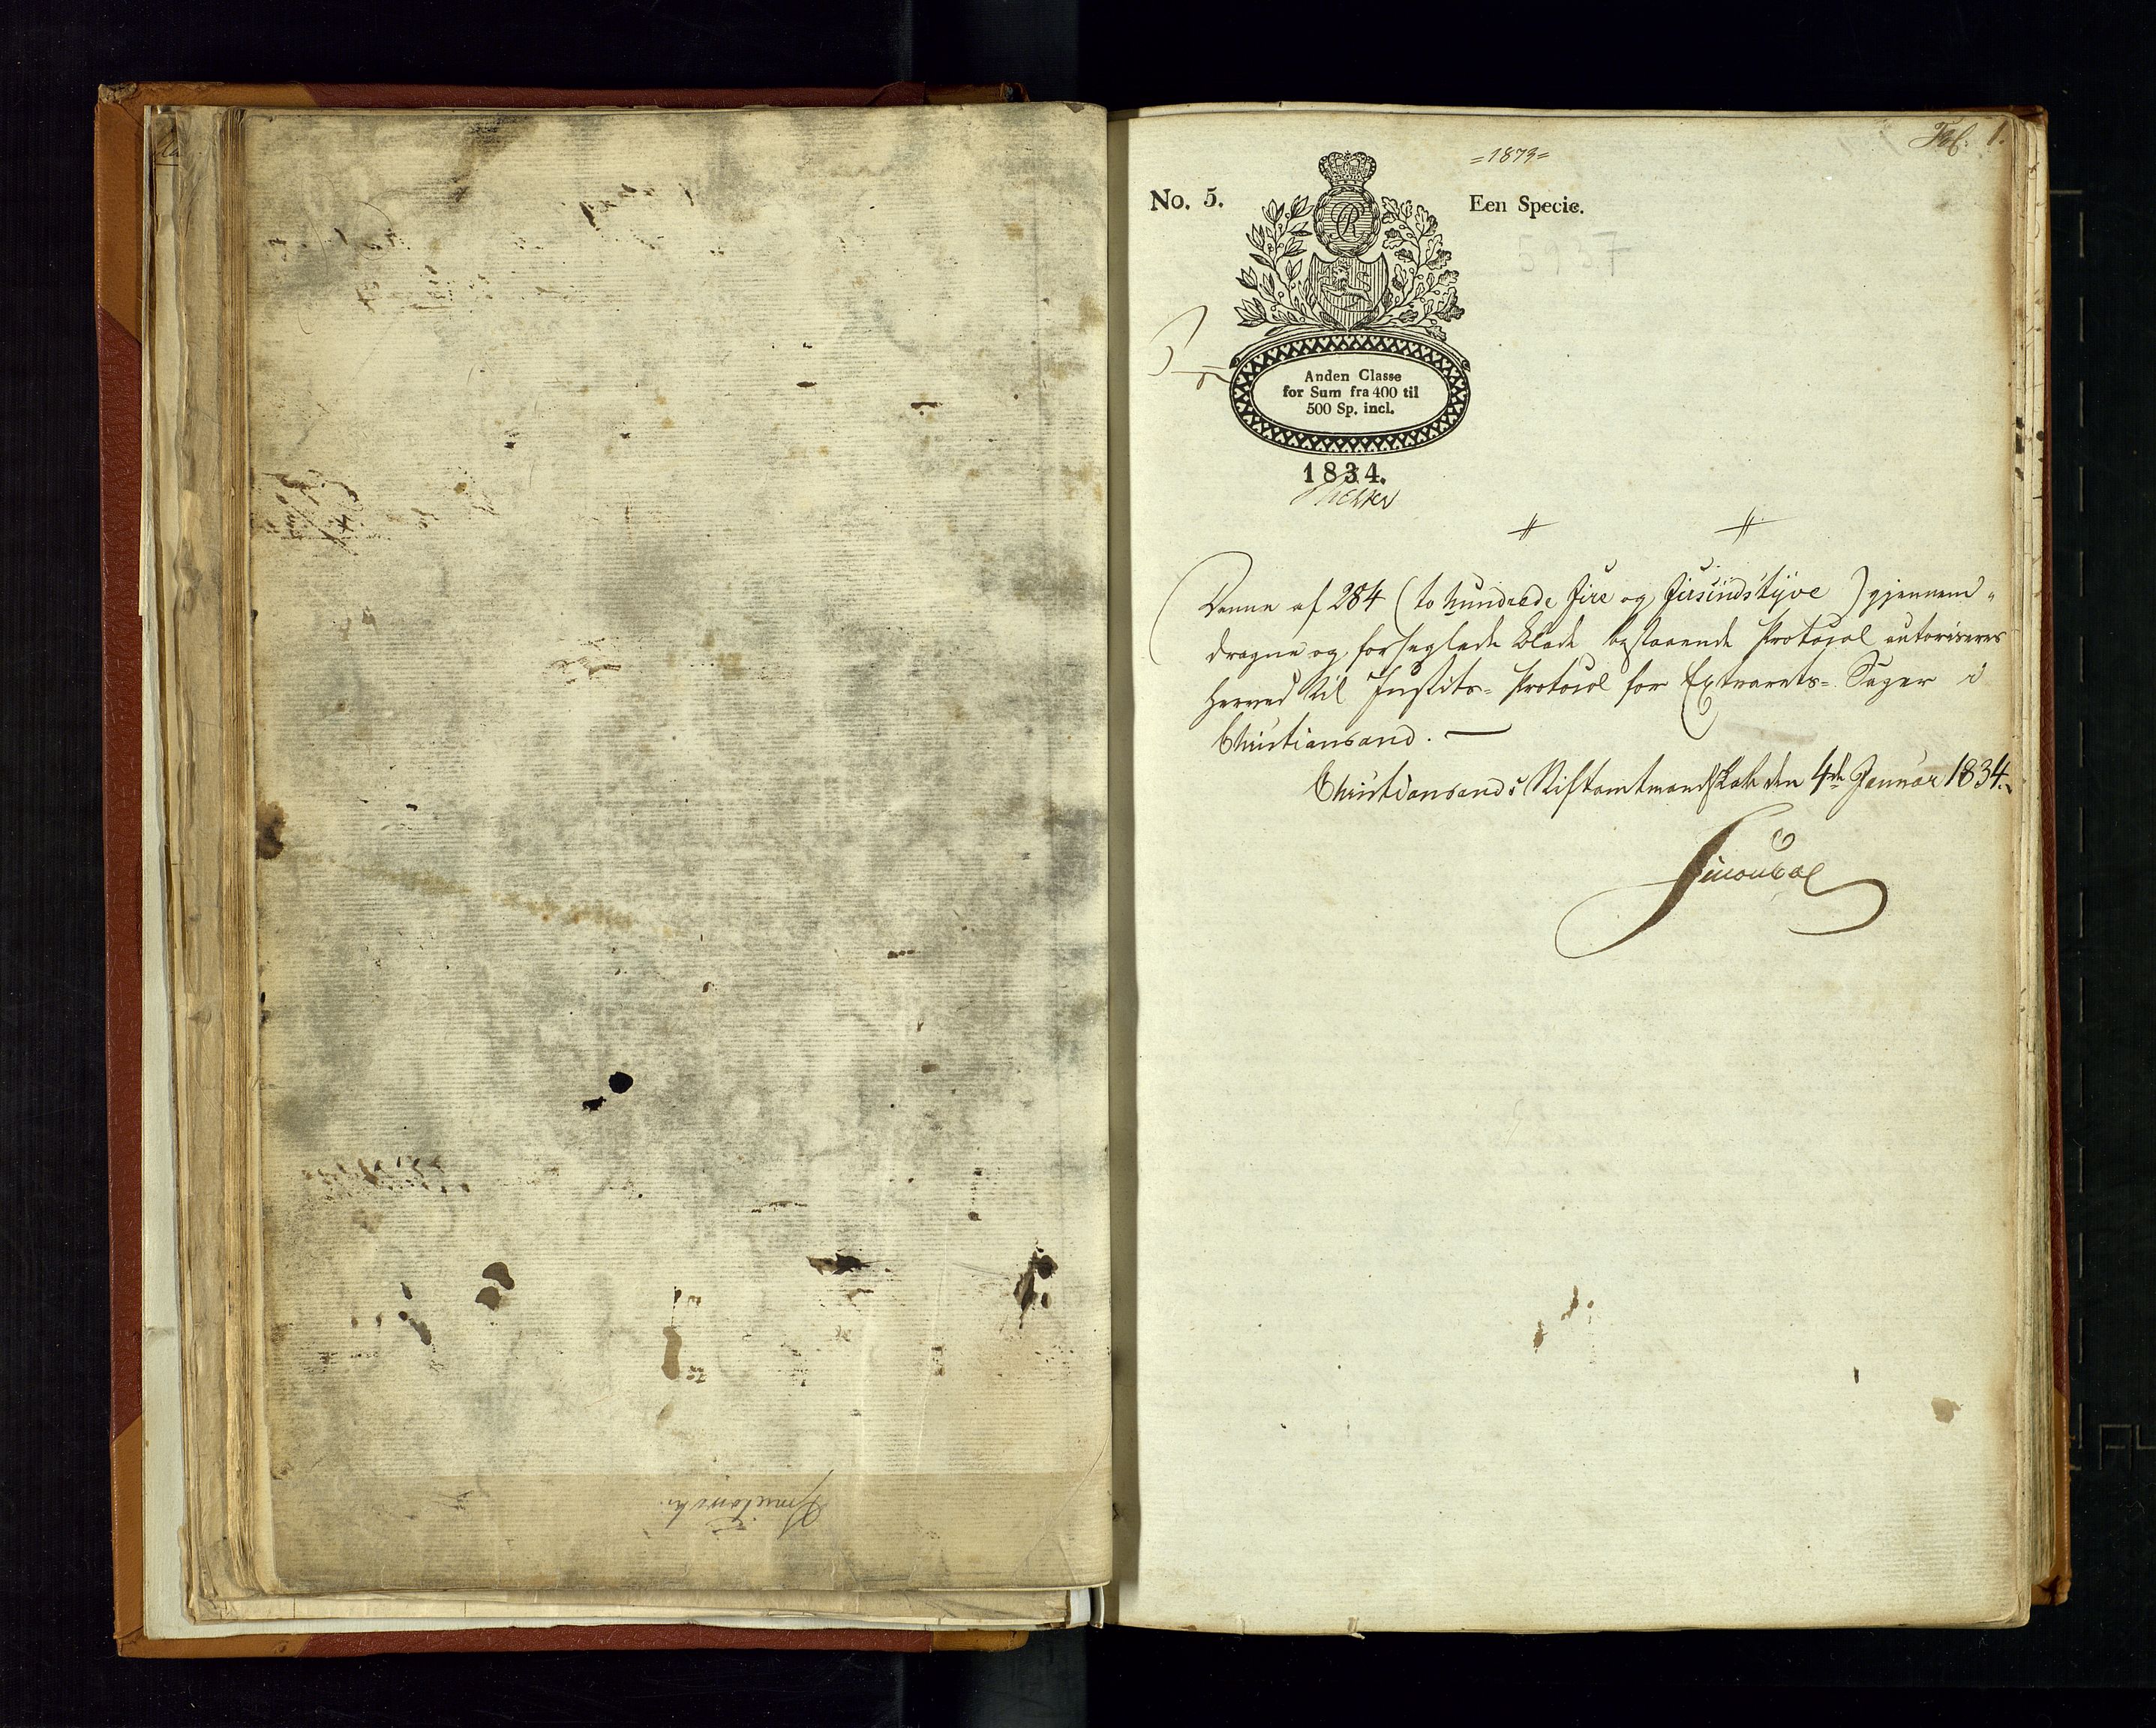 Fol. 1.
=1873=
No. 5.
Een Specie.
5957
Anden Classe
for Sum fra 400 til
500 Sp. incl.
1834.
Denne af 284 (to hundrede fire og firsindstyve) gjennem-
dragne og forseglede Blade bestaaende Protocol autoriseres
herved til Justits-Protocol for Extrarets-Sager i
Christiansand. —
Christiansands Stiftamtmandskab den 4de Januar 1834.